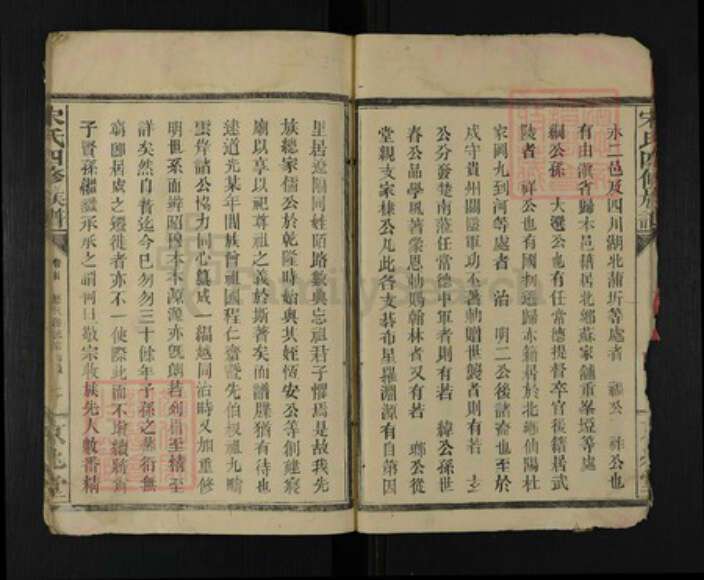 永二邑及四川湖北蒲圻等處者 福公 祥公也
有由滇省歸本邑籍居北鄉蘇家舖重峯埡等處
嗣公孫 大遷公也有任常德提督卒官後籍居武
陵者 祥公也有國初還歸永籍居於北鄉仙陽杜
家園九到河等處者 治 明二公後諸裔也至於
戍守貴州關隘軍功不著勅贈世襲者則有若
公分發楚南蒞任常德中軍者則有若 緯公孫世
春公品學夙著榮恩勅賜翰林者又有若 鄉公從
堂親支家棣公凡此各支碁布星羅淵源有自第因
里居遼隔同姓陌路數典忘祖君子懼焉是故我先
族總家儒公於乾隆時始與其姪恆安公等創建寢
廟以享以祀尊祖之義於斯著矣而譜牒猶有待也
逮道光某年間族曾祖國程仁齋暨先伯叔祖九疇
雲峯諸公協力同心纂成一編越同治時又加重修
明世系而辨昭穆木本源源亦旣朗若列眉至精至
詳矣然自昔迄今已勿勿三十餘年子孫之蕃衍無
窮與居處之遷徙者亦不一使際此而不增續將對
子賢孫繼繼承承之謂何曰敬宗收族先人數番精
宋氏四修族譜
宋氏四修族譜
京兆堂
FamilySearch